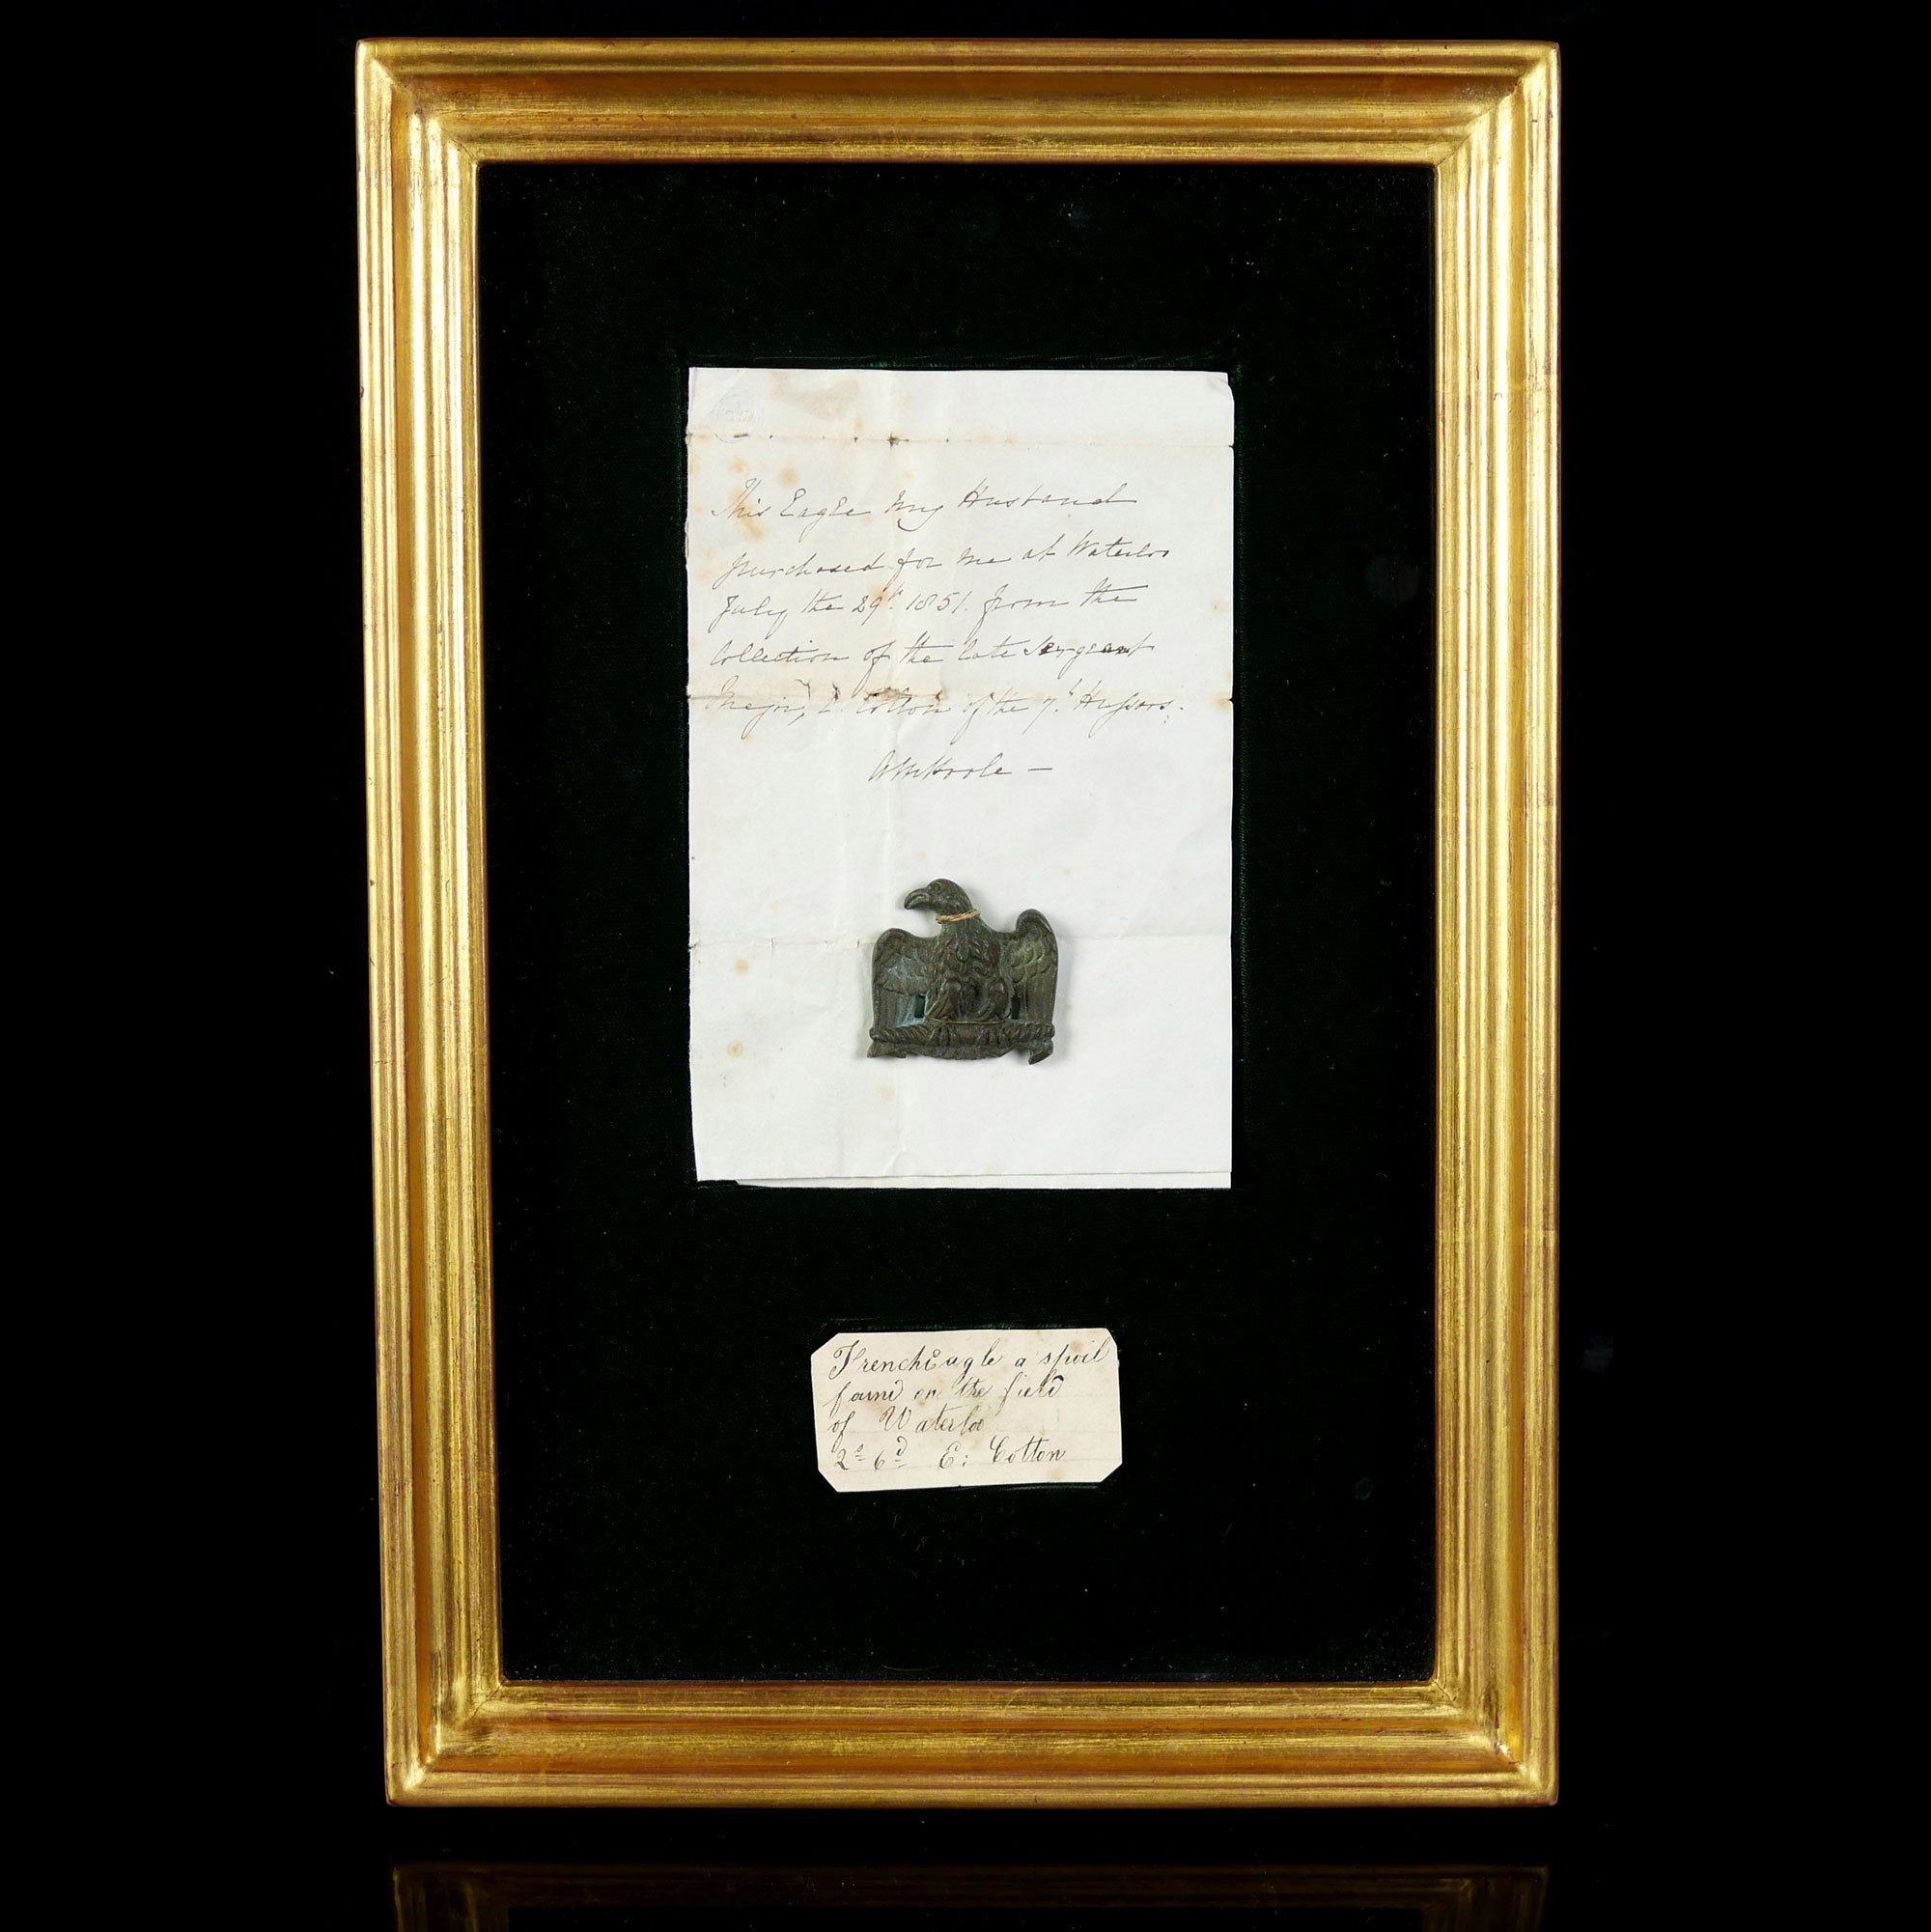 This Eagle my Husband
purchased for me at Waterloo
July the 29th 1851 from the
Collection of the late Sergeant
Major, E Cotton of the 7th Hussars.
French Eagle a spoil
found on the field
of Waterloo
2s 6d E: Cotton